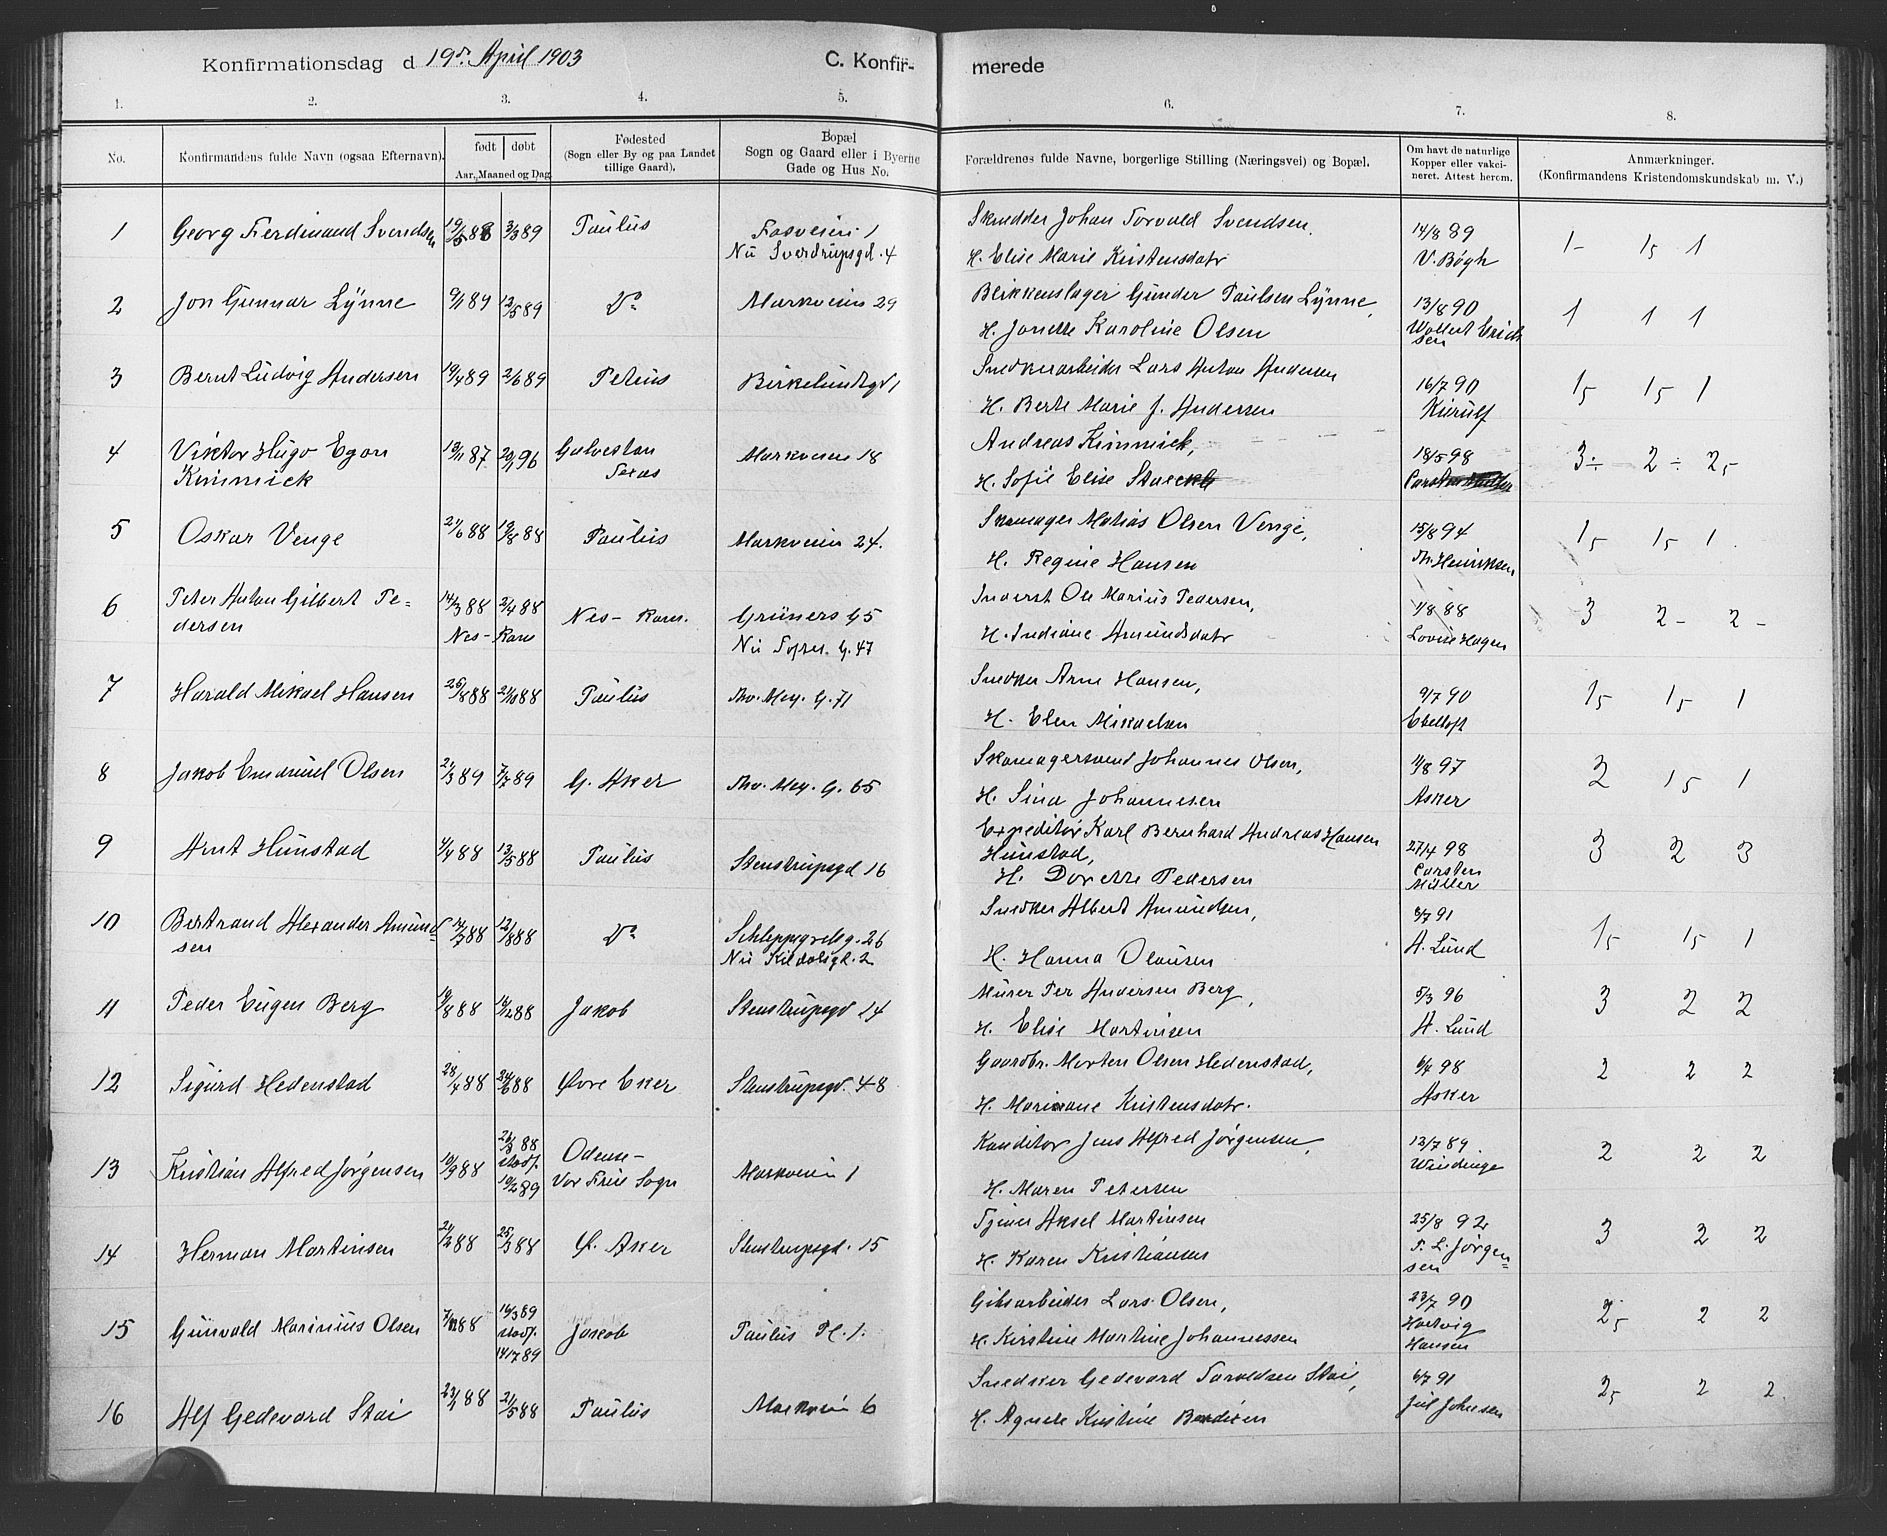 Konfirmationsdag d 19de April 1903 C. Konfir- merede
1. 2. 3. 4. 5. 6. 7. 8.
No.
Konfirmandens fulde Navn (ogsaa Efternavn).
født døbt
Aar, Maaned og Dag.
Fødested
(Sogn eller By og paa Landet
tillige Gaard).
Bopæl
Sogn og Gaard eller i Byerne
Gade og Hus No.
Forældrenes fulde Navne, borgerlige Stilling (Næringsvei) og Bopæl.
Om havt de naturlige
Kopper eller vakci-
neret. Attest herom.
Anmærkninger.
(Konfirmandens Kristendomskundskab m. V.)
1 Georg Ferdinand Svendsen 3/3 89 Paulus Fosveien 1
Nu Sverdrupsgd. 4
Skrædder Johan Torvald Svendsen,
H. Elise Marie Kristensdatr
14/8 89
V. Bøgh
1- 15 1
2 Jon Gunnar Lynne 9/1 89 12/5 89 Do Markveien 29
Blikkenslager Gunder Paulsen Lynne,
H. Janette Karoline Olsen
13/8 90
Wollert Erich
sen
1 1 1
3 Bernt Ludvig Andersen 19/4 89 2/6 89 Petrus Birkelundsgd 1
Snedkerarbeider Lars Anton Andersen
H. Berte Marie J. Andersen
16/7 90
Kierulf
15 15 1
4 Viktor Hugo Egon
Kimmick
87 96 Galveston
Texas
Markveien 18
Andreas Kimmick,
H. Sofie Elise Staeckle
18/5 98
3÷ 2÷ 25-
5 Oskar Venge 21/6 88 19/8 88 Paulus Markveien 24.
Skomager Matias Olsen Venge,
H. Regine Hansen
15/8 94
Th. Henriksen
15 15 1
6 Peter Anton Gilbert Pe-
dersen
14/3 88 2/4 88
Nes - Rom
Nes - Rom. Grüners G 5
Nu Toftes. G. 47
Inderst Ole Marius Pedersen,
H. Indiane Amundsdatr
1/8 88
Lovise Hagen
3 2- 2-
7 Harald Mikael Hansen 26/8 88 21/10 88 Paulus Thv. Mey. G. 71
Snedker Arne Hansen,
H. Elen Mikaelsen
9/7 90
Ebeltoft
15 15 1
8 Jakob Emanuel Olsen 21/3 89 7/7 89 G. Aker Thv. Mey. G. 65
Skomagersvend Johannes Olsen,
H. Sina Johannesen
11/8 97
Asker
2 15 1
9 Arnt Hunstad 4/4 88 13/5 88 Paulus Stenstrupsgd 16
Expeditør Karl Bernhard Andreas Hansen
Hunstad,
H. Dorette Pedersen
27/4 98
Carsten
Müller
3 2 3
10 Bertrand Alexander Amund=
sen
88 12/8 88 Do Schleppegrelsg. 26
Nu Kildalsgd. 2
Snedker Albert Amundsen,
H. Hanna Olausen
8/7 91
A. Lund
15 15 1
11 Peder Eugen Berg 19/8 88 88 Jakob Stenstrupsgd 14
Murer Per Andersen Berg,
H. Elise Martinsen
5/3 96
A. Lund
3 2 2
12 Sigurd Hedenstad 28/4 88 24/6 88 Øvre Eker Stenstrupsgd. 48
Gaardbr. Morten Olsen Hedenstad,
H. Mariane Kristensdatr.
6/4 98
Asker
2 2 2
13 Kristian Alfred Jørgensen 10/3 88 88
stadf.
10/2 89
Odense -
Vor Frue Sogn
Markveien 1
Konditor Jens Alfred Jørgensen,
H. Maren Petersen
13/7 89
Windinge
2 2 2
14 Herman Martinsen 21/2 88 25/3 88 Ø. Aker Stenstrupsgd. 15
Tjener Aksel Martinsen
H. Karen Kristiansen
25/8 92
T. L. Jørgen=
sen
3 2 2
15 Gunvald Marinius Olsen 7/11 88 16/3 89
stadf.
14/7 89
Jakob Paulus Pl. 1.
Gibsarbeider Lars Olsen,
H. Kirstine Martine Johannessen
23/7 90
Hartvig
Hansen
25 2 2
16 Alf Gedevard Stai 23/2 88 21/5 88 Paulus Markveien 6
Snedker Gedevard Torvaldsen Stai,
H. Agnete Kristine Bendixen
6/7 91
Jul Johnsen
25 2 2.